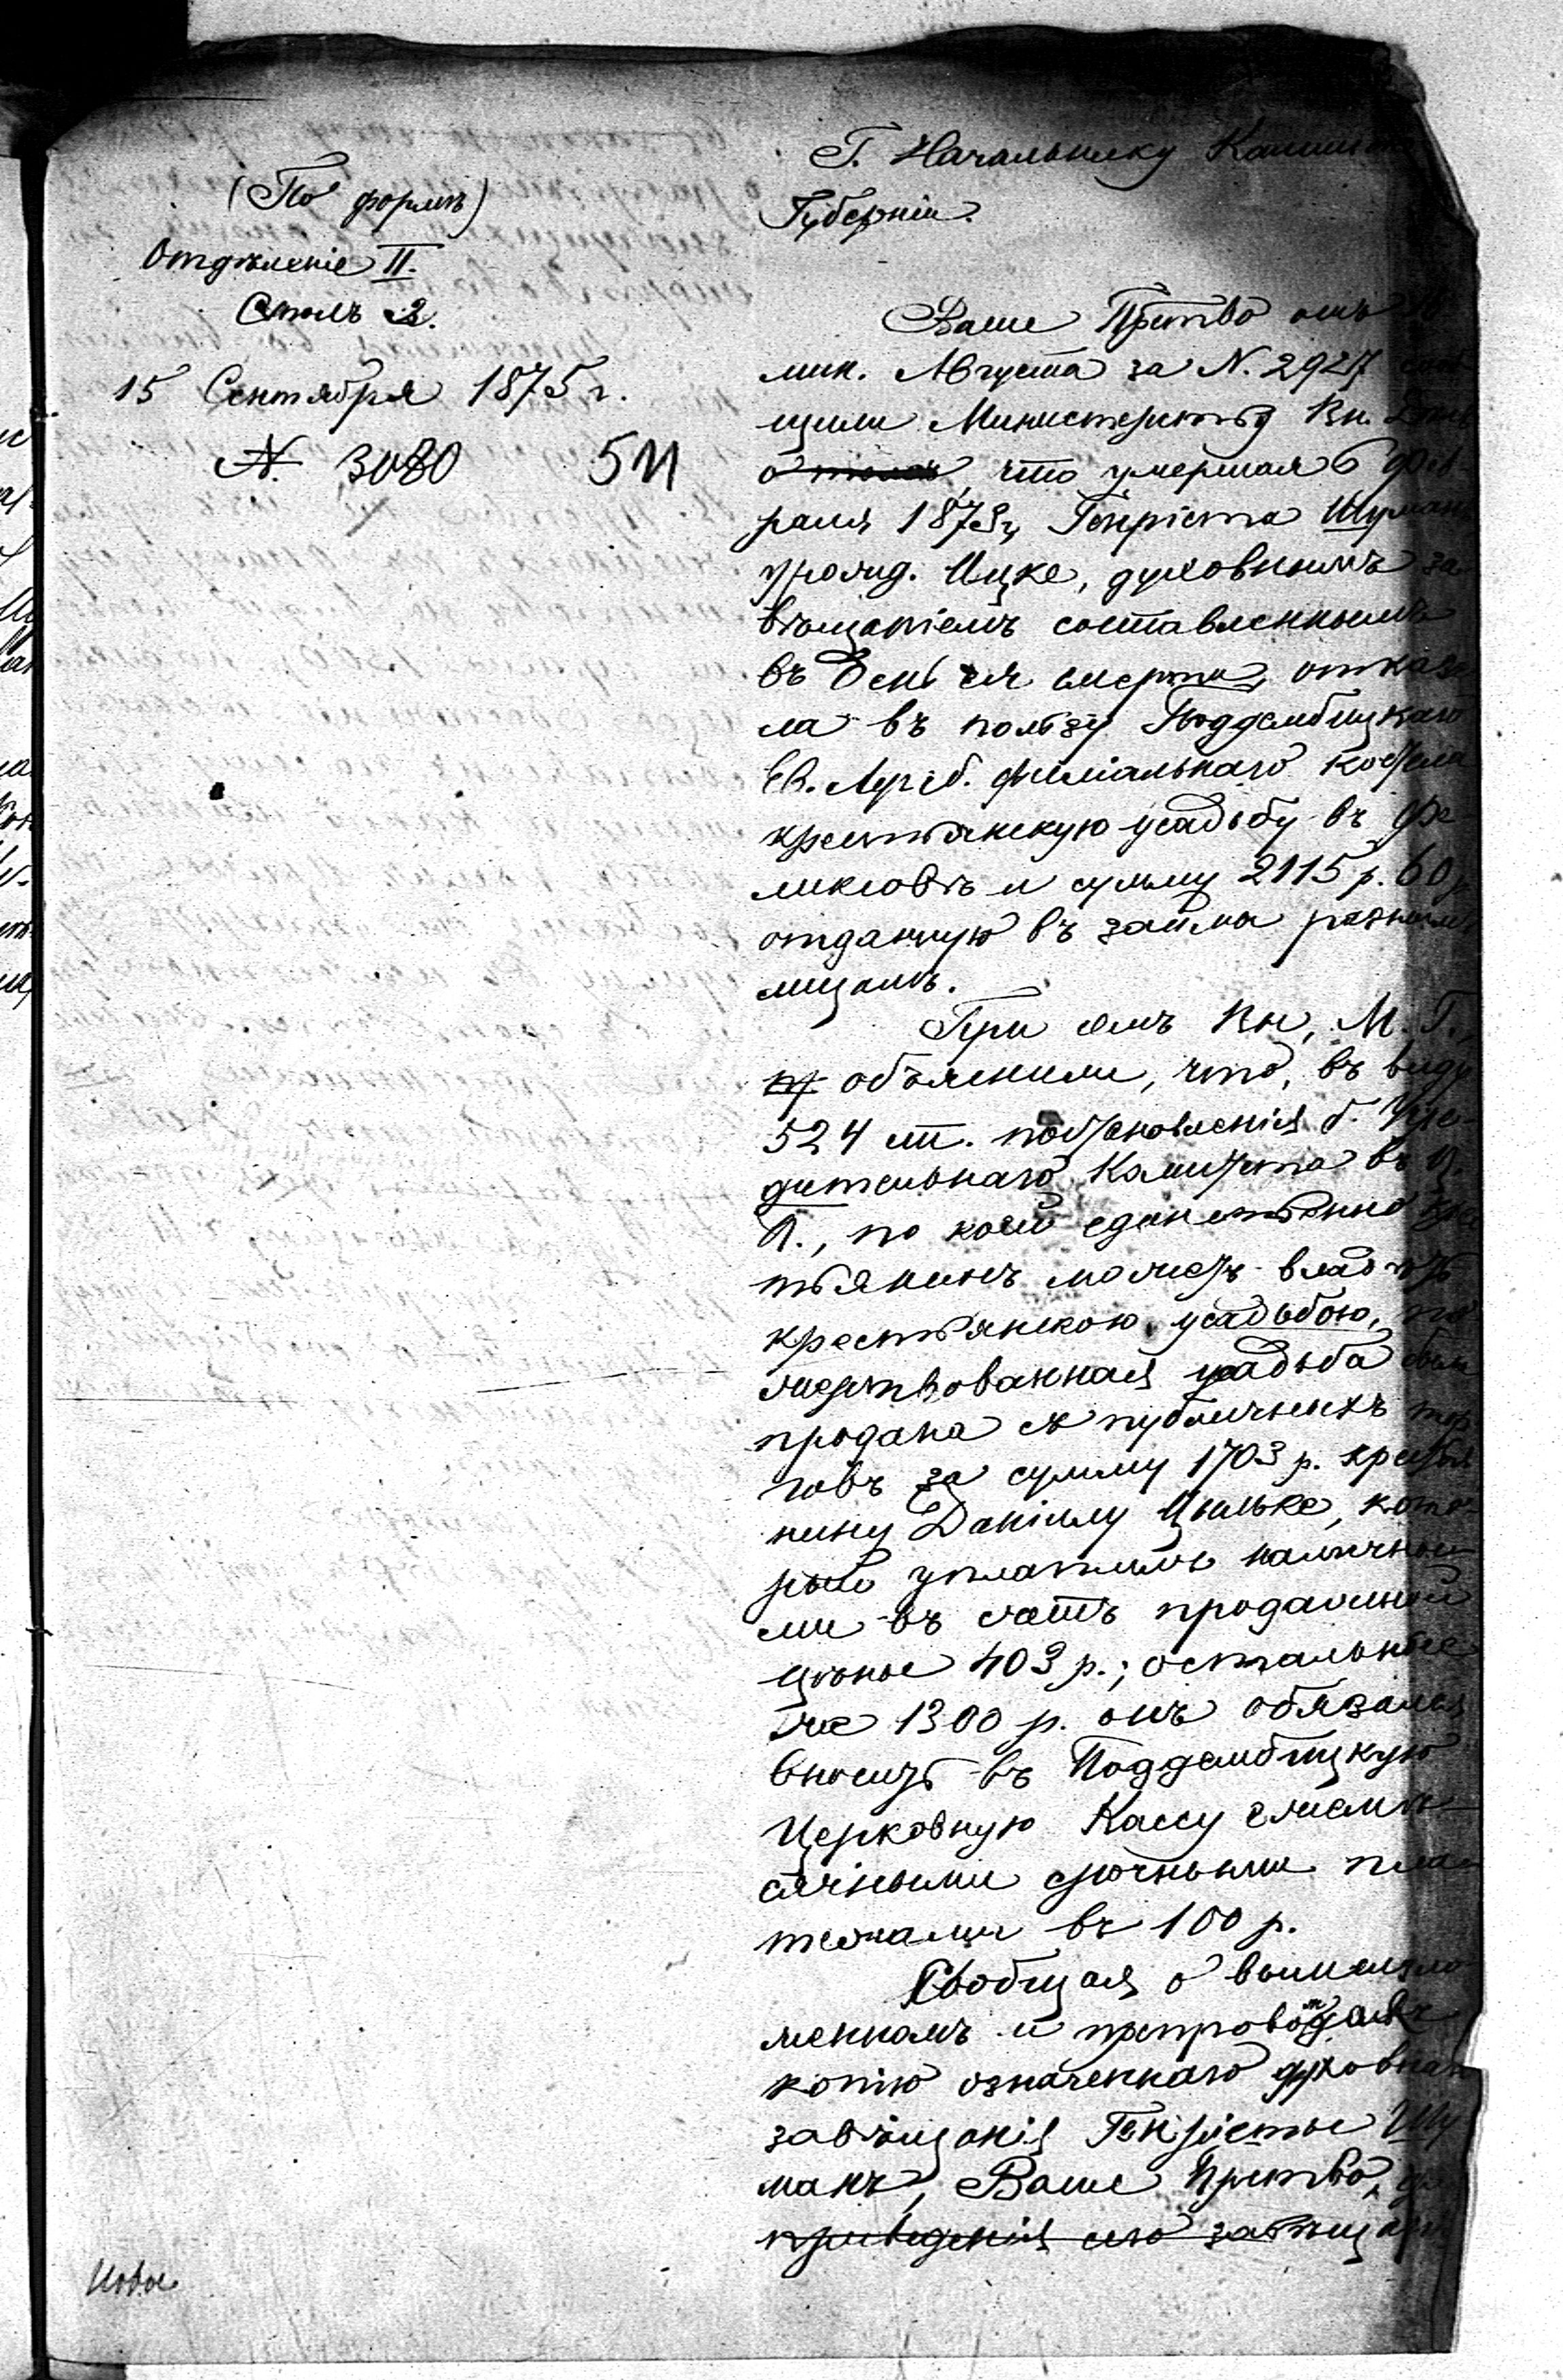 (По формѣ)
Отдѣленіе II.
Столъ 2.
15 Сентября 1875 г.
N. 3080 511
Г. Начальнику
Губерніи.
Ваше Прство отъ
мин. Августа за N. 2927
щили Министерству Вн.
о томъ, что умершая 6 Фев-
раля 1873 г. Генріета Шуманъ
урожд. Ицке, духовнымъ за
вѣщаніемъ составленнымъ
въ день ея смерти, отказа
ла въ пользу Поддембицкаго
Ев. Аугсб. филіальнаго костела
крестьянскую усадьбу въ Фе
ликсовѣ и сумму 2115 р. 60
отданную въ займы разнымъ
лицамъ.
При семъ Вы, М. Г.,
объяснили, что, въ виду
524 ст. постановленія б. Учре-
дительнаго Комитета въ Ц.
П., по коей единственно
тьянинъ можетъ владѣть
крестьянскою усадьбою, по
жертвованная усадьба была
продана съ публичныхъ тор
говъ за сумму 1703 р. кресть
нину Даніилу Цильке, кото-
рый уплатилъ наличны
ми въ счетъ продажной
цѣны 403 р.; остальные
же 1300 р. онъ обязался
вносить въ Поддембицкую
Церковную Кассу
срочными пла
тежами въ 100 р.
Сообщая о вышеизло
женномъ и препровождая
копію означеннаго духовнаго
завѣщанія Генріеты Шу
манъ, Ваше Прство,
приведенія сего завѣщанія
Новое